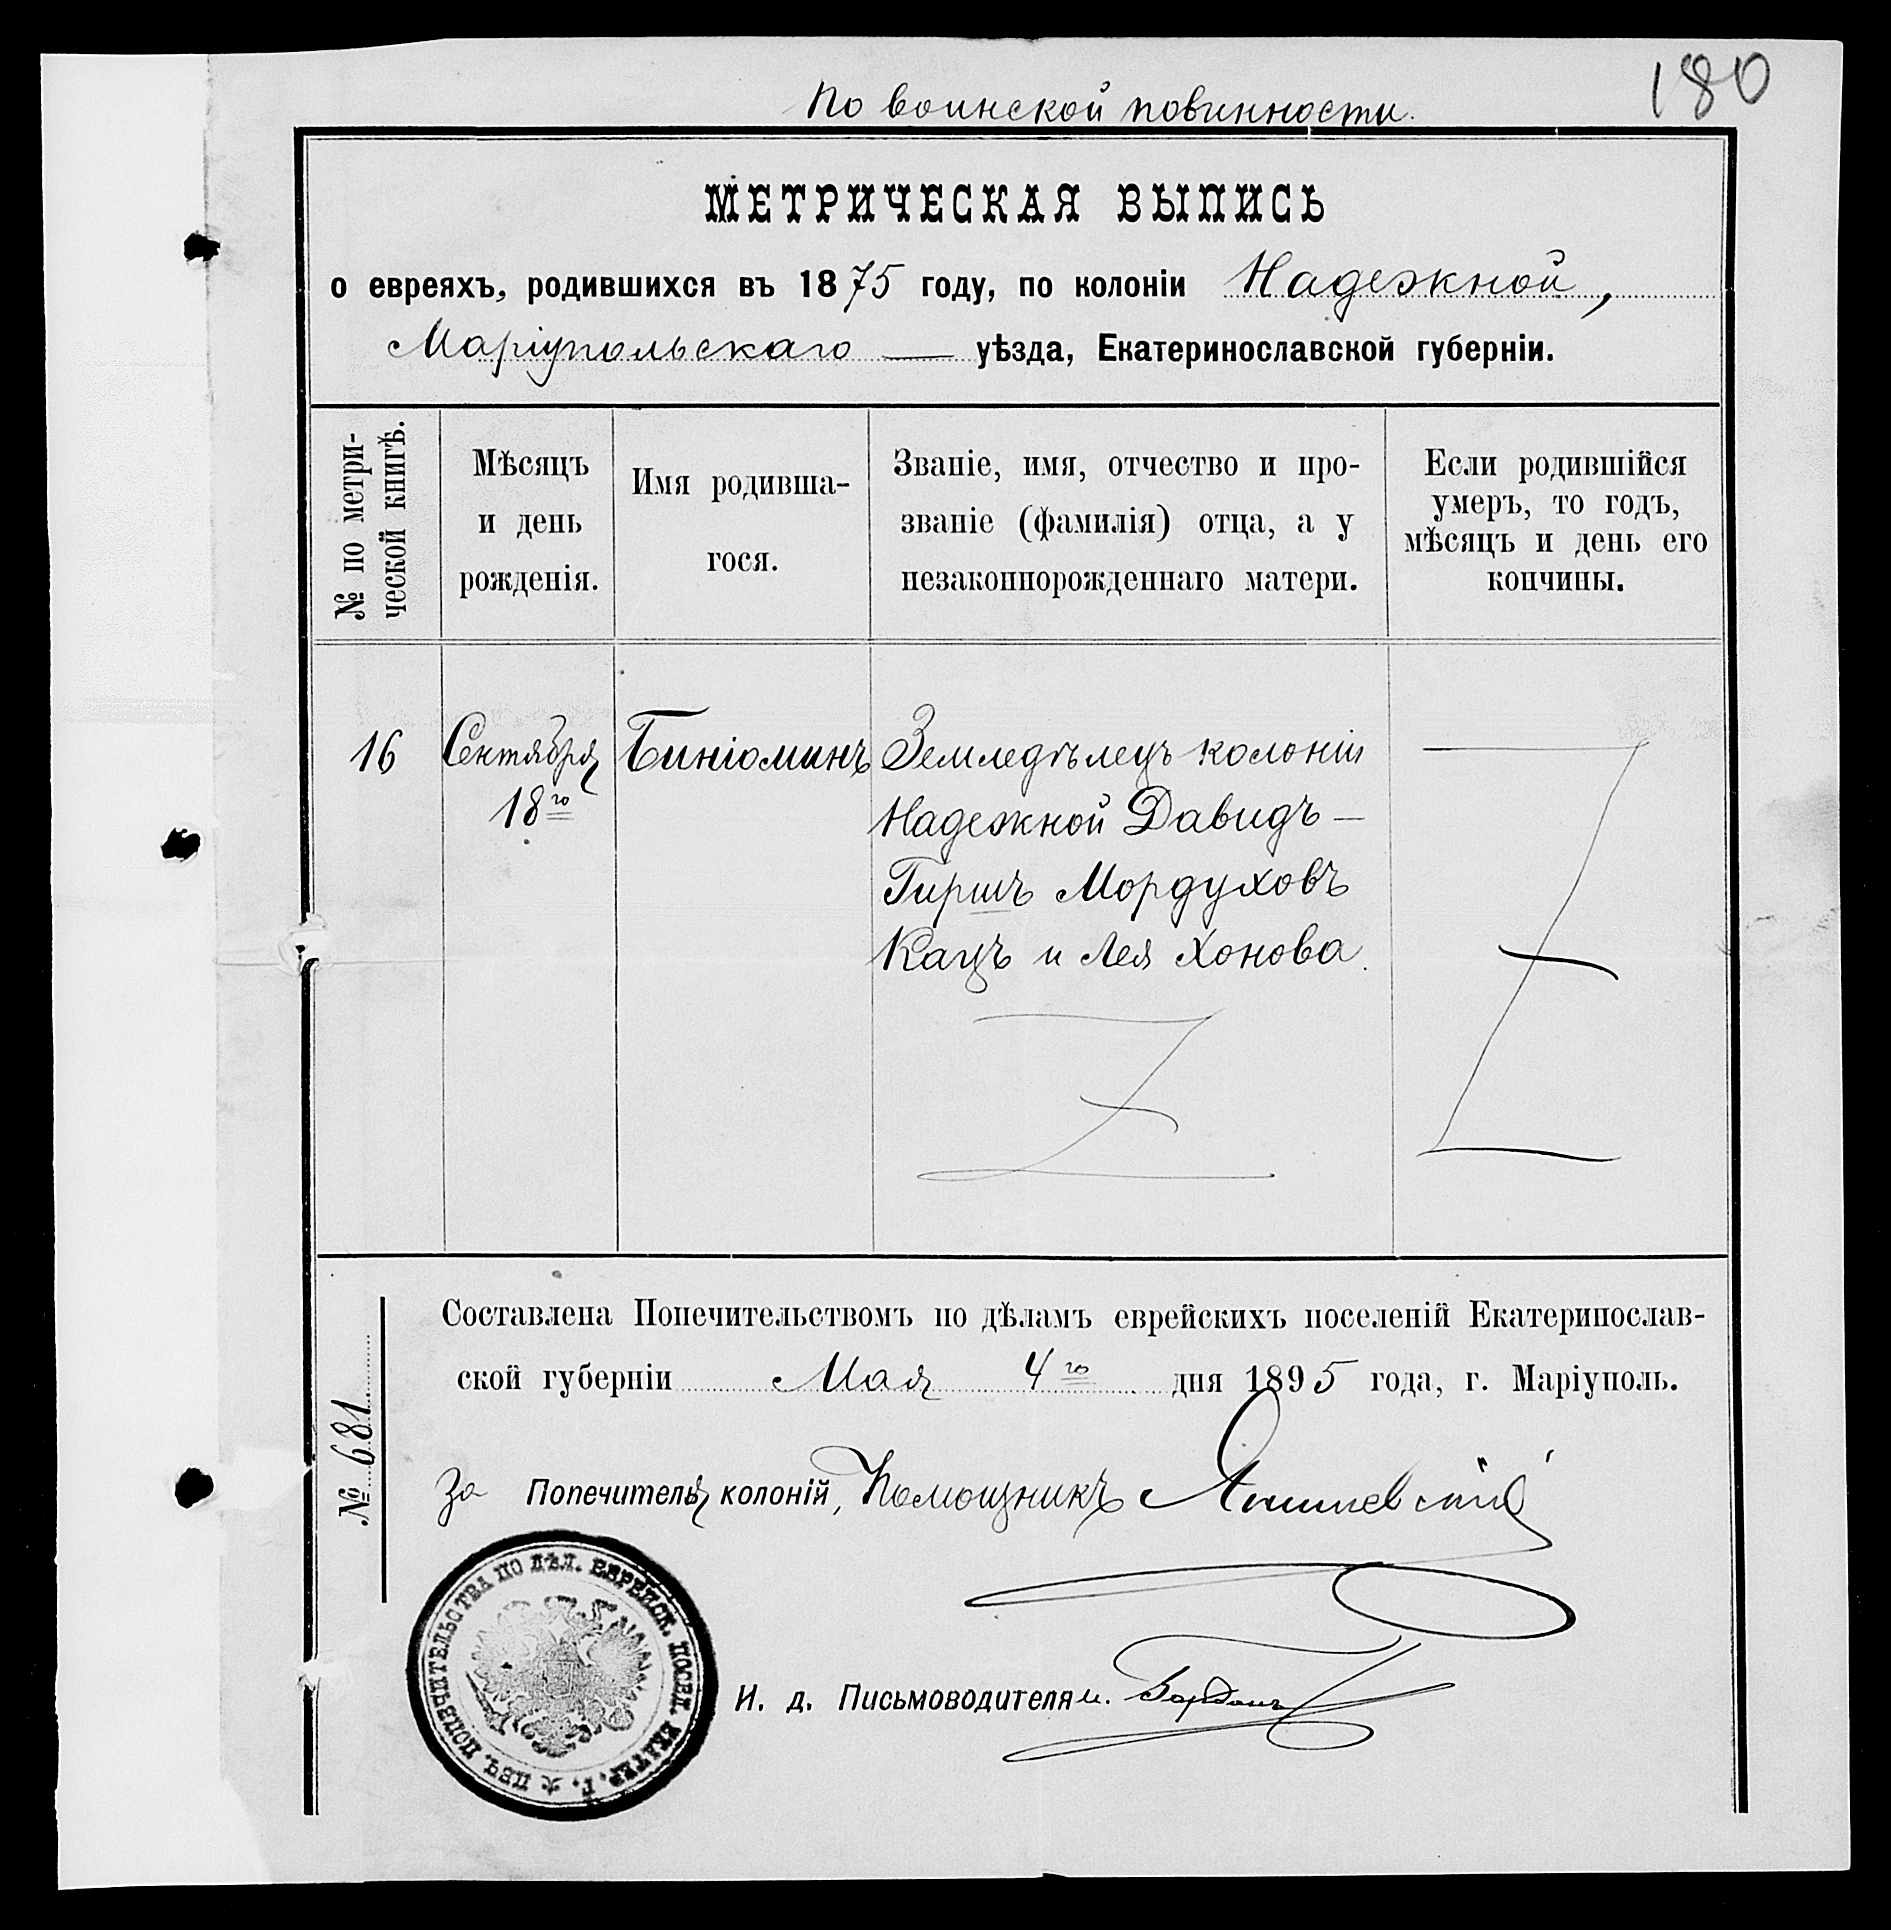 180
По воинской повинности.
МЕТРИЧЕСКАЯ ВЫПИСЬ
о евреяхъ, родившихся въ 1875 году, по колоніи Надежной,
Маріупольскаго — уѣзда, Екатеринославской губерніи.
№ по метри-
ческой книгѣ.
Мѣсяцъ
и день
рожденія.
Имя родивша-
гося.
Званіе, имя, отчество и про-
званіе (фамилія) отца, а у
незаконнорожденнаго матери.
Если родившійся
умеръ, то годъ,
мѣсяцъ и день его
кончины.
16
Сентября
18го
Биніоминъ
Земледѣлецъ колоніи
Надежной Давидъ —
Гиршъ Мордуховъ
Кацъ и Лея Хонова.
Составлена Попечительствомъ по дѣламъ еврейскихъ поселеній Екатеринослав-
ской губерніи Мая 4го дня 1895 года, г. Маріуполь.
№ 681
За Попечителя колоній, Помощникъ
И. д. Письмоводителя
ПЕЧ. ПОПЕЧИТЕЛЬСТВА ПО ДѢЛ. ЕВРЕЙСК. ПОСЕЛ. ЕКАТЕР. Г.